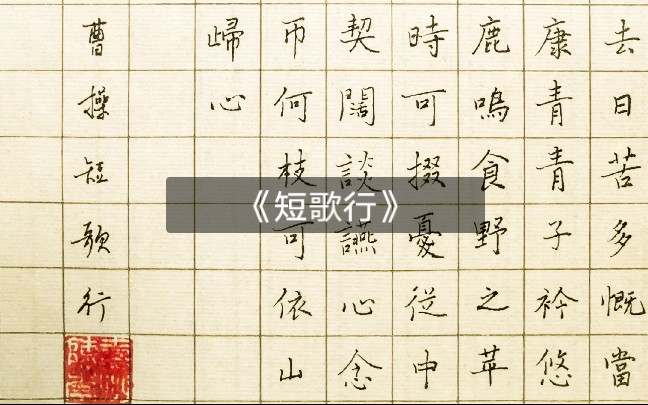 去日苦多慨當
康青青子衿悠
鹿鳴食野之苹
時可掇憂從中
契闊談讌心念
帀何枝可依山
歸心
曹操短歌行
《短歌行》